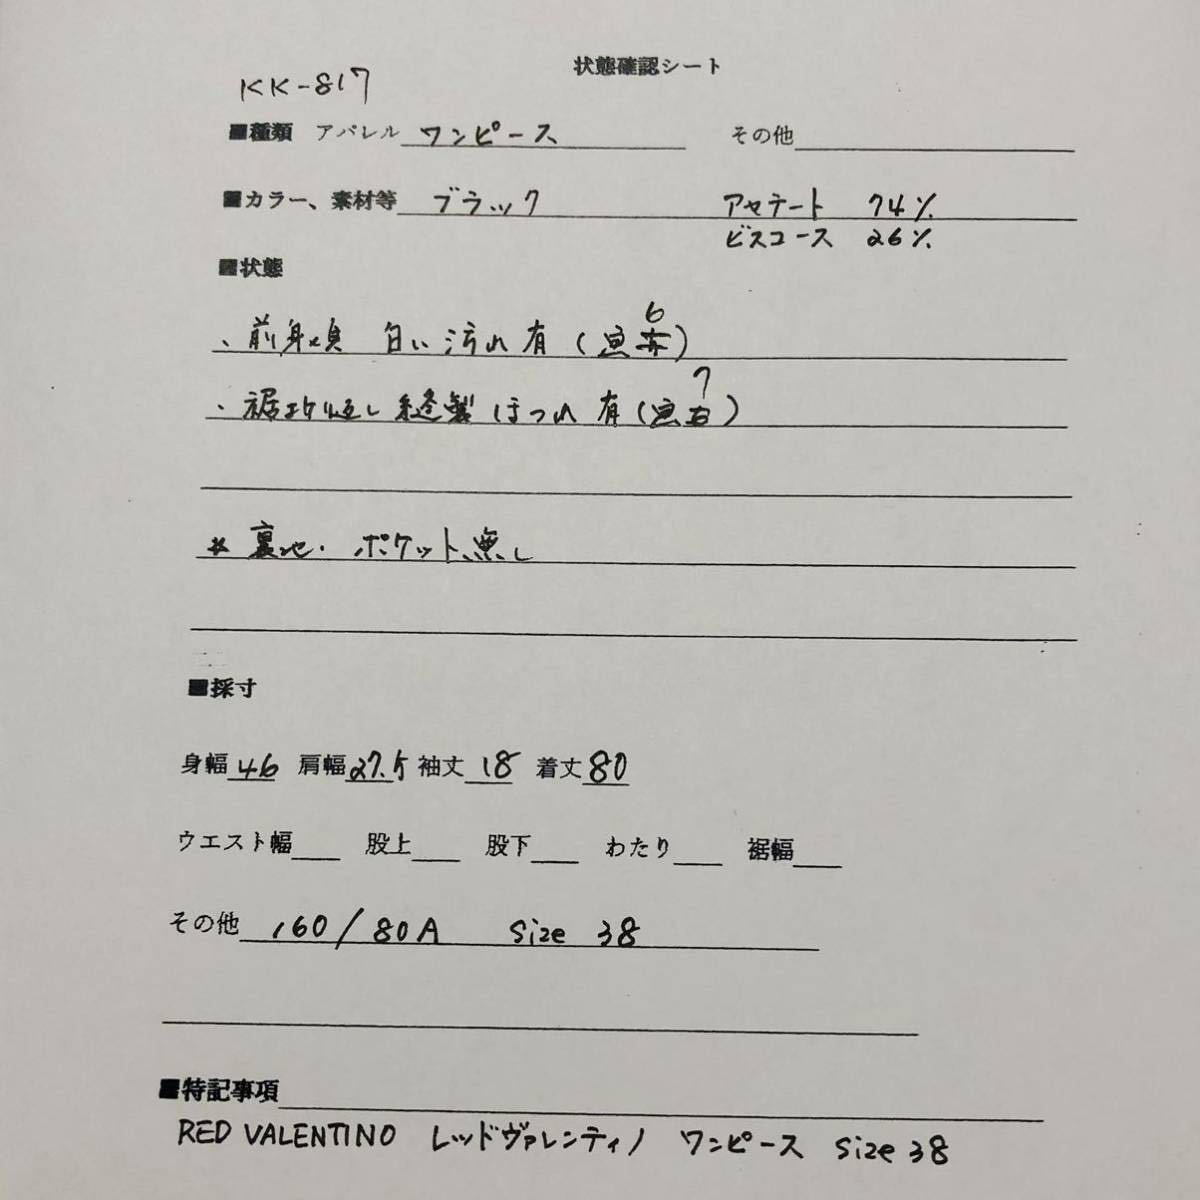 状態確認シート
KK-817
■種類 アパレル ワンピース その他
■カラー、素材等 ブラック アセテート 74%
ビスコース 26%
■状態
・前身頃 白い汚れ有 (画 6)
・裾折り返し 縫製 ほつれ 有 (画 7)
* 裏地・ポケット無し
■採寸
身幅 46 肩幅 27.5 袖丈 18 着丈 80
ウエスト幅 股上 股下 わたり 裾幅
その他 160/80A Size 38
■特記事項
RED VALENTINO レッドヴァレンティノ ワンピース Size 38